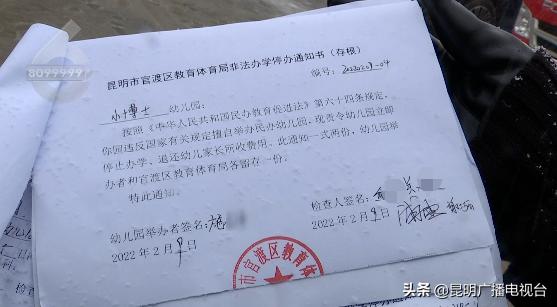 8099999
昆明市官渡区教育体育局非法办学停办通知书（存根）
编号：20220209-04
小博士 幼儿园：
按照《中华人民共和国民办教育促进法》第六十四条规定，
你园违反国家有关规定擅自举办民办幼儿园，现责令幼儿园立即
停止办学，退还幼儿家长所收费用。此通知一式两份，幼儿园举
办者和官渡区教育体育局各留存一份。
特此通知。
幼儿园举办者签名：
检查人签名：
2022年2月9日
2022年2月9日
市官渡区教育体
检查
2022年
头条 @昆明广播电视台